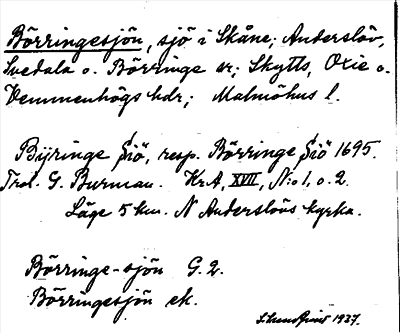 Börringesjön, sjö i Skåne; Anderslöv,
Svedala o. Börringe sr; Skytts, Oxie o.
Vemmenhögs hdr; Malmöhus l.
Bijringe Siö, resp. Börringe Siö 1695.
Trol. G. Burman. KrA, XVII, N:o 1, o. 2.
Läge 5 km. N Anderslövs kyrka.
Börringe-sjön G. 2.
Börringesjön ek.
1937.